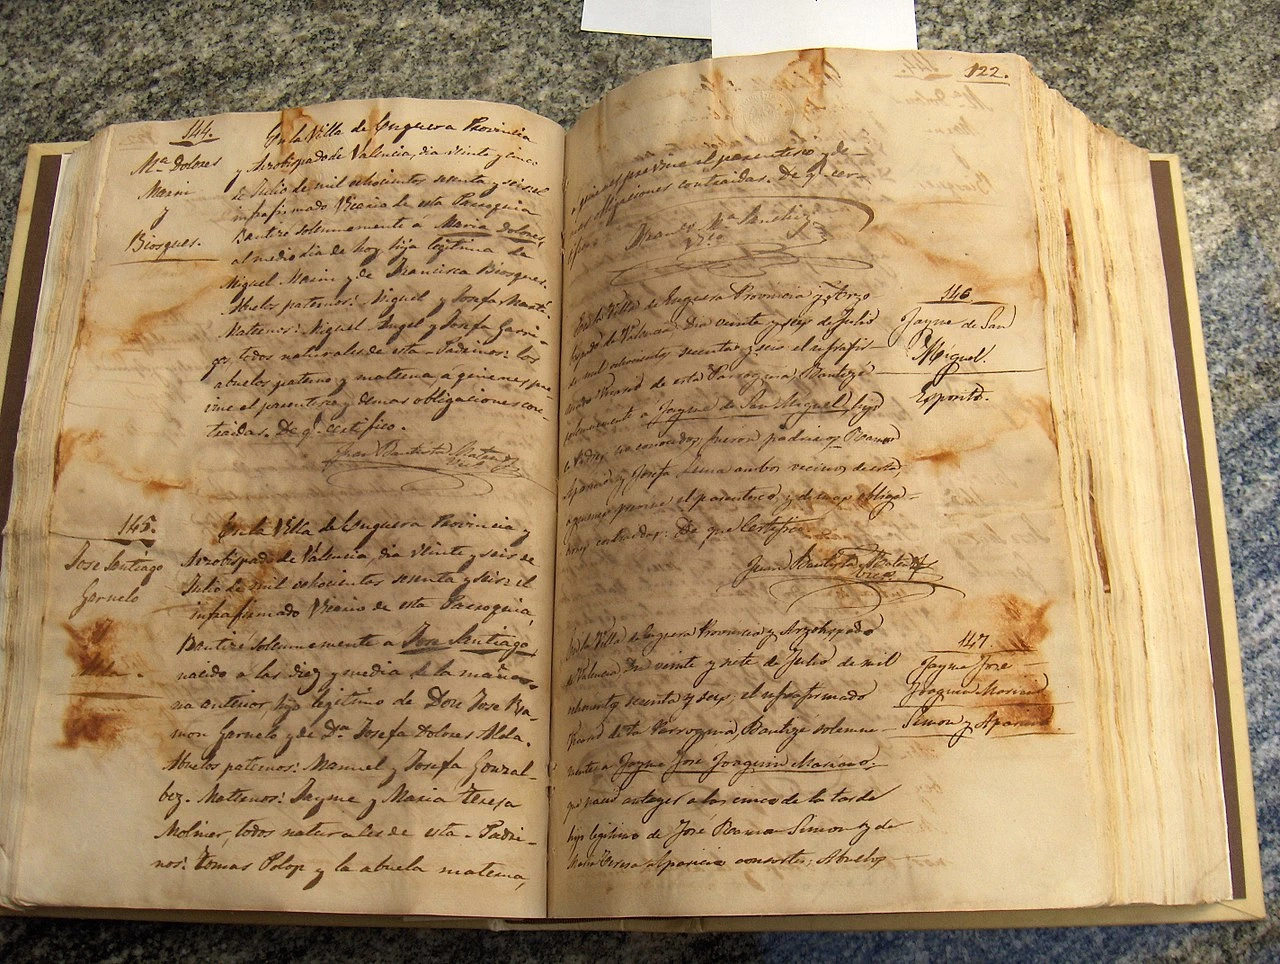 144.
Mª Dolores
Marin
y
Biosques.
En la Villa de Enguera Provincia
y Arzobispado de Valencia, dia veinte y cinco
de Julio de mil ochocientos sesenta y seis: el
infrafirmado Vicario de esta Parroquia
Bautizé solemnemente á Maria Dolores,
al medio dia de hoy, hija legitima de
Miguel Marin y de Francisca Biosques.
Abuelos paternos: Miguel y Josefa
Maternos: Miguel Angel y Josefa Garri-
gos, todos naturales de esta. Padrinos: los
abuelos paterno y materna, a quienes pre-
vine el parentesco y demas obligaciones con-
traidas. De q.e certifico.
Juan Bautista
145.
Jose Santiago
Garnelo
Alda.
En la Villa de Enguera Provincia y
Arzobispado de Valencia, dia veinte y seis de
Julio de mil ochocientos sesenta y seis: el
infrafirmado Vicario de esta Parroquia,
Bautizé solemnemente a Jose Santiago,
nacido a las diez y media de la maña-
na anterior, hijo legitimo de Don Jose Ra-
mon Garnelo y de Dª Josefa Dolores Alda.
Abuelos paternos: Manuel y Josefa Gonzal-
bez. Maternos: Jayme y Maria Teresa
Moliner, todos naturales de esta. Padri-
nos: Tomas Polop y la abuela materna,
122.
a quienes previne el parentesco y de-
mas obligaciones contraidas. De q.e cer-
tifico.
Mª Sanchiz
146
Jayme de San
Miguel.
Esposito.
En la Villa de Enguera Provincia y Arzo
bispado de Valencia dia veinte y seis de Julio
de mil ochocientos sesenta y seis el infrafir-
mado Vicario de esta Parroquia, Bautizé
solemnemente a Jayme de San Miguel, hijo
de Padres no conocidos, fueron padrinos Ramon
Aparicio y Josefa Sena ambos vecinos de esta,
a quienes previne el parentesco, y demas obliga-
ciones contraidas: De que Certifico
Juan Bautista
147
Jayme Jose
Joaquin Mariano
Simon y Aparicio
En la Villa de Enguera Provincia y Arzobispado
de Valencia dia veinte y siete de Julio de mil
ochocientos sesenta y seis, el infrafirmado
Vicario de la Parroquia, Bautizé solemne-
mente a Jayme José Joaquin Mariano,
que nació antayer a las cinco de la tarde
hijo legitimo de José Ramon Simon y de
Maria Teresa Aparicio consortes; Abuelos